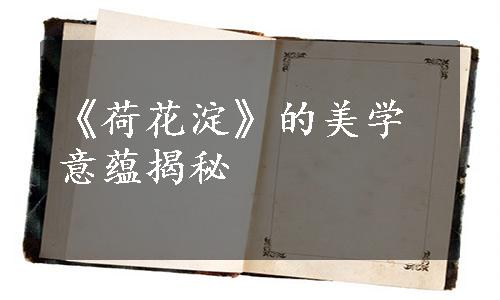 《荷花淀》的美学
意蕴揭秘